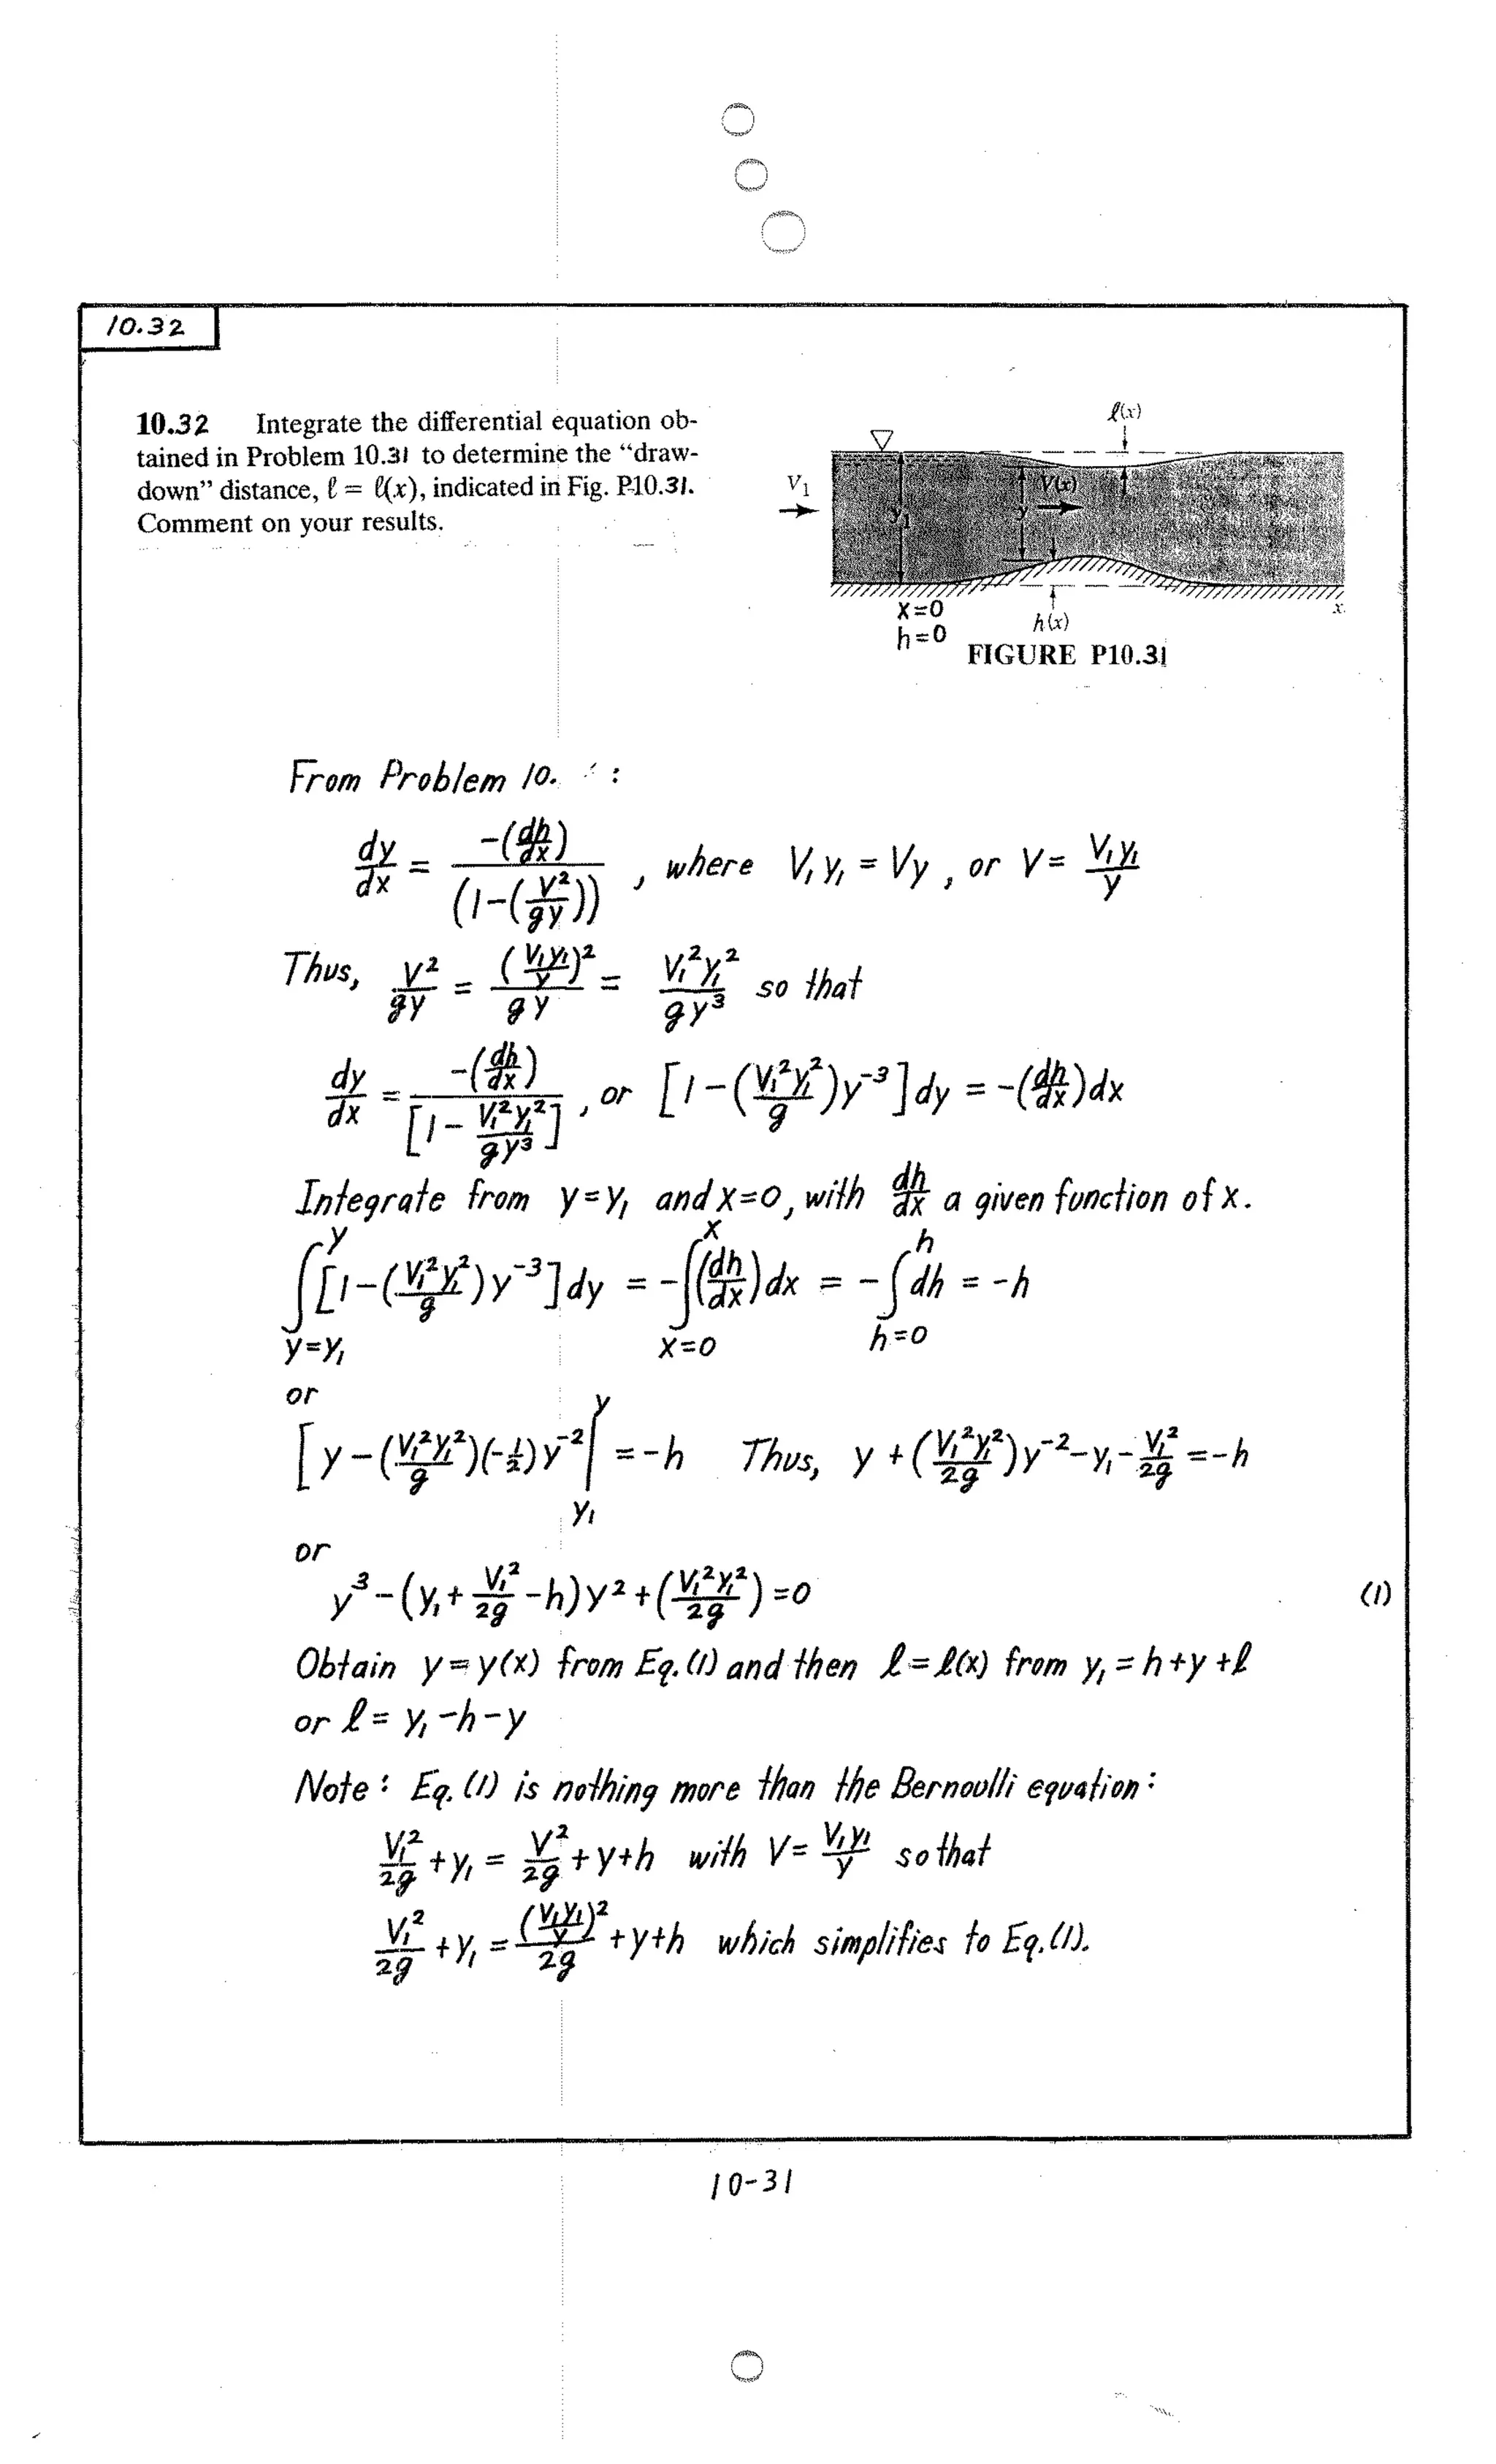 10.32
10.32 Integrate the differential equation ob-
tained in Problem 10.31 to determine the "draw-
down" distance, ℓ = ℓ(x), indicated in Fig. P10.31.
Comment on your results.
ℓ(x)
V₁
V(x)
y₁
y
x=0
h=0
h(x)
x
FIGURE P10.31
From Problem 10. :
dy/dx = -(dh/dx) / (1-(V²/gy)) , where V₁y₁ = Vy , or V = V₁y₁/y
Thus, V²/gy = (V₁y₁/y)²/gy = V₁²y₁²/gy³ so that
dy/dx = -(dh/dx) / [1 - V₁²y₁²/gy³] , or [1-(V₁²y₁²/g)y⁻³]dy = -(dh/dx)dx
Integrate from y=y₁ and x=0, with dh/dx a given function of x.
∫_{y=y₁}^{y} [1-(V₁²y₁²/g)y⁻³]dy = -∫_{x=0}^{x} (dh/dx)dx = -∫_{h=0}^{h} dh = -h
or
[y-(V₁²y₁²/g)(-1/2)y⁻²|_{y₁}^{y} = -h Thus, y+(V₁²y₁²/2g)y⁻²-y₁-V₁²/2g = -h
or
y³-(y₁+V₁²/2g-h)y²+(V₁²y₁²/2g)=0 (1)
Obtain y=y(x) from Eq.(1) and then ℓ=ℓ(x) from y₁=h+y+ℓ
or ℓ = y₁-h-y
Note: Eq. (1) is nothing more than the Bernoulli equation:
V₁²/2g + y₁ = V²/2g + y+h with V= V₁y₁/y so that
V₁²/2g + y₁ = (V₁y₁/y)²/2g + y+h which simplifies to Eq.(1).
10-31